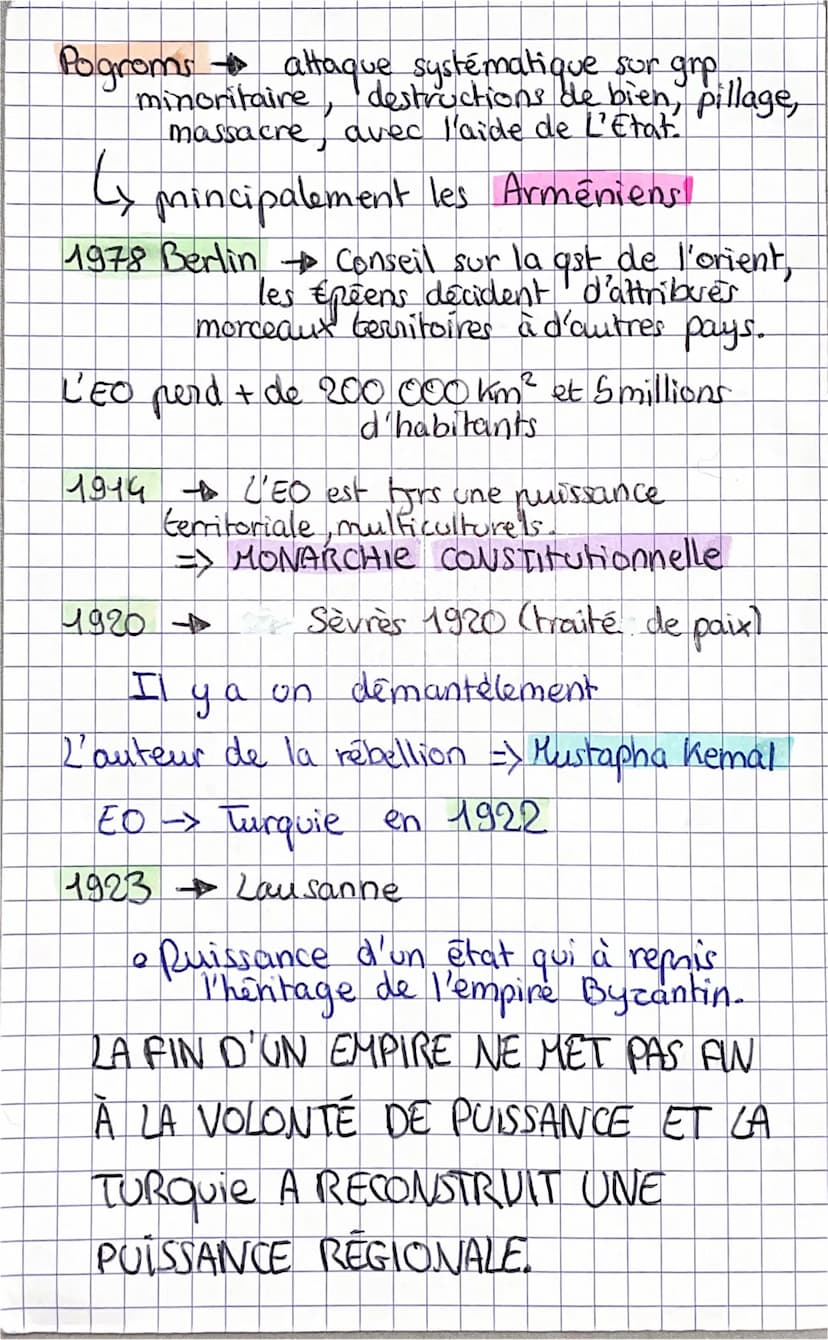 Pogroms → attaque systématique sur grp
minoritaire, destructions de bien, pillage,
massacre, avec l'aide de L'État.
↳ principalement les Arméniens!
1978 Berlin → Conseil sur la qst de l'orient,
les €péens décident d'attribués
morceaux territoires à d'autres pays.
L'EO perd + de 200 000 Km² et 5 millions
d'habitants
1914 → L'EO est tjrs une puissance
territoriale, multiculturels.
=> MONARCHIE CONSTITUTIONNELLE
1920 → Sèvrès 1920 (traité de paix)
Il y a un démantélement
L'auteur de la rébellion => Mustapha Kemal
EO → Turquie en 1922
1923 → Lausanne
• Puissance d'un état qui à repris
l'héritage de l'empire Byzantin.
LA FIN D'UN EMPIRE NE MET PAS FIN
À LA VOLONTÉ DE PUISSANCE ET LA
TURQUIE A RECONSTRUIT UNE
PUISSANCE RÉGIONALE.